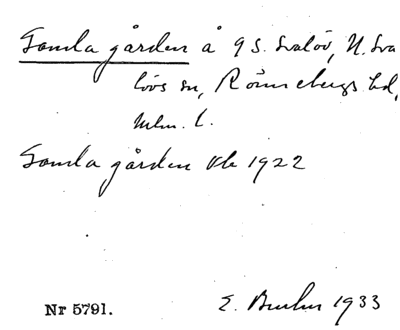 Gamla gården å 9 S. Svalöv, N. Sva
lövs sn, Rönnebergs hd,
Mlm. l.
Gamla gården 1922
Nr 5791.
E. 1933